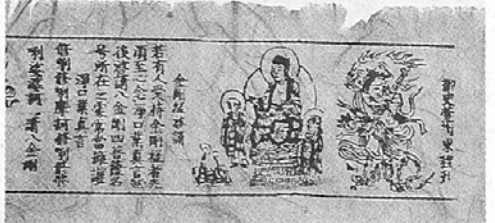 金剛經啓請
若有人受持金剛經者先
須至心念淨口業真言然
後啓請八金剛四菩薩名
号所在之處常當擁護
淨口業真言
脩唎脩唎摩訶脩唎脩脩
唎娑婆訶 八金剛